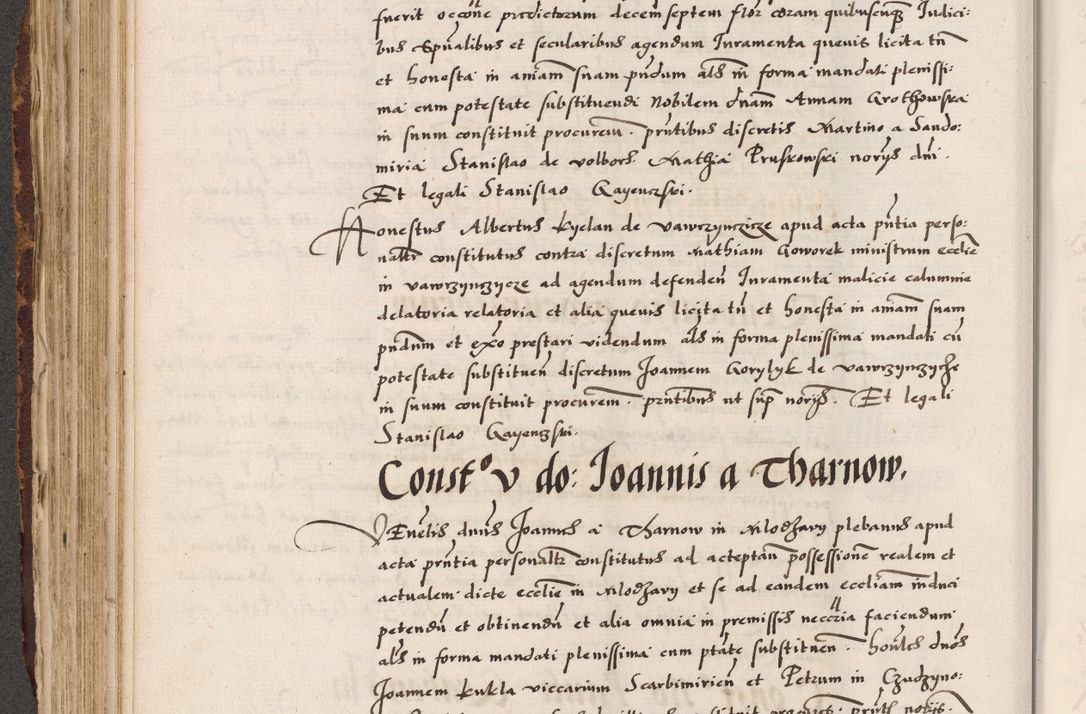 fuerit occone predictorum decem septem flor coram quibuscuqz Iudici:
bus Spualibus et secularibus agendum Iuramenta quevis licita tn
et honesta in aniam suam pndum als in forma mandati plenissi:
ma cum potestate substituendi Nobilem dnam Annam Grothowska
in suum constituit procurem. pntibus discretis Martino a Sando:
miria Stanislao de volbors Mathia Pruskowski norys dni.
Et legali Stanislao Gayenczski.
Honestus Albertus kyelan de vawrzynczicze apud acta pntia perso:
naltr constitutus contra discretum Mathiam Goworek ministrum ecclie
in vawrzynczycze ad agendum defenden Iuramenta malicie calumnie
delatoria relatoria et alia quevis licita tn et honesta in aniam suam
pndum et exo prestari videndum als in forma plenissima mandati cu
potestate substituen discretum Joannem Gorylyk de vawrzynczyche
in suum constituit procurem. pntibus ut sup norys. Et legali
Stanislao Gayenczski.
Const° v do: Ioannis a Tharnow.
VEnelis dnus Joannes a Tharnow in Mlodzavy plebanus apud
acta pntia personaltr constitutus ad acceptan possessione realem et
actualem dicte ecclie in Mlodzavy et se ad eandem eccliam induci
petendu et obtinendu et alia omnia in premissis neccria faciendum
als in forma mandati plenissima cum ptate substituen. honles dnos
Joannem kukla viccarium Scarbimirien et Petrum in Czudzyno: